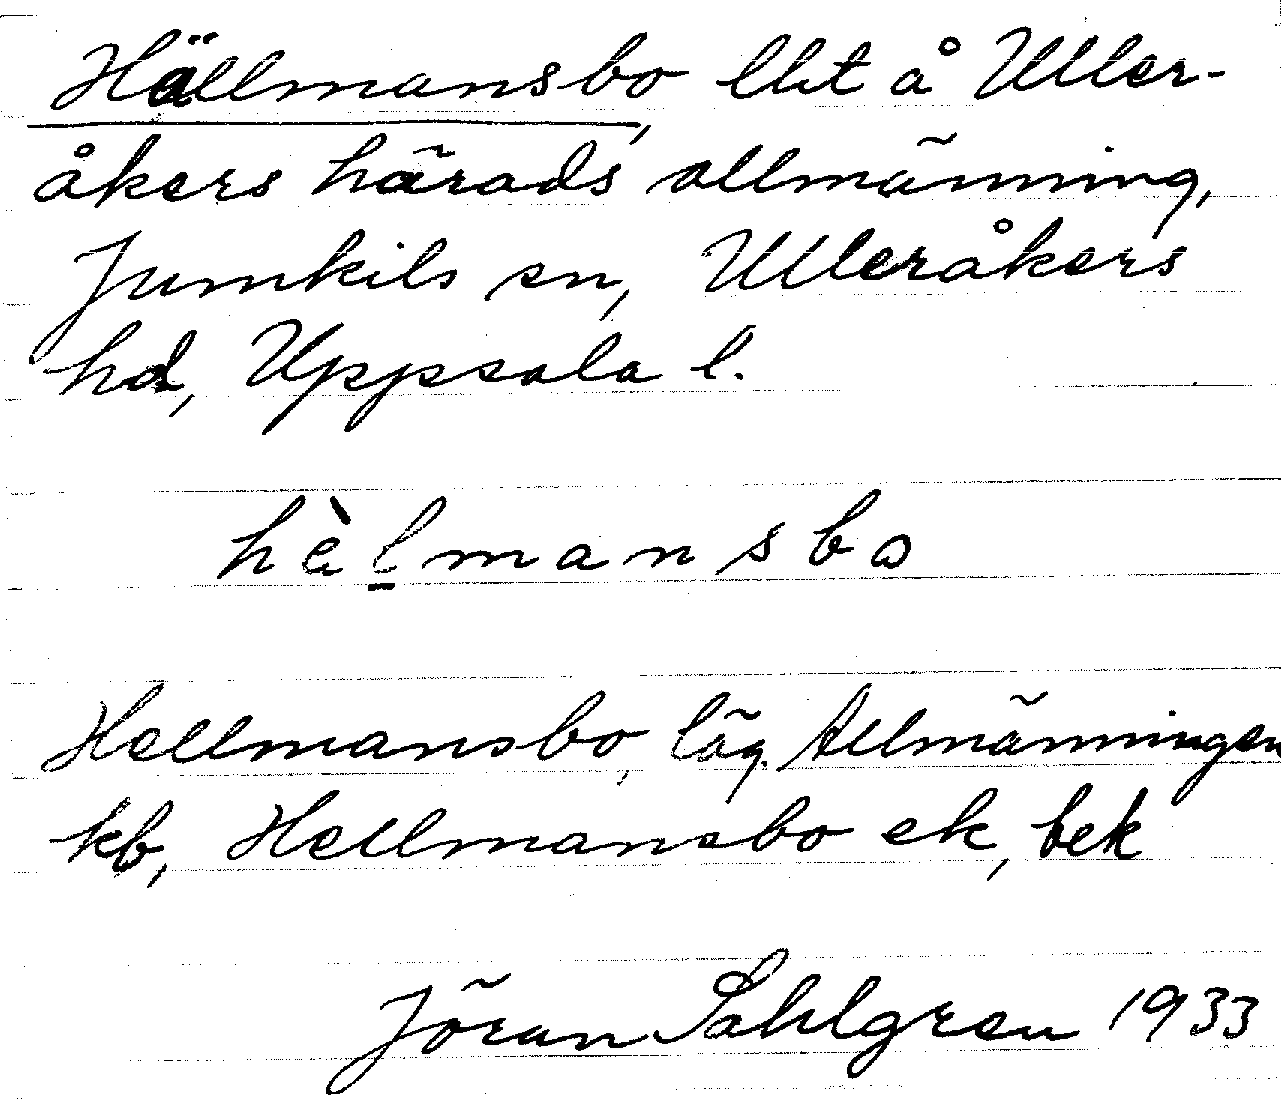 Hällmansbo, lht å Uller-
åkers härads allmänning,
Jumkils sn, Ulleråkers
hd, Uppsala l.
hèl̠mansbo
Hellmansbo, läg. Allmänningen
kb, Hellmansbo ek, bek
Jöran Sahlgren 1933